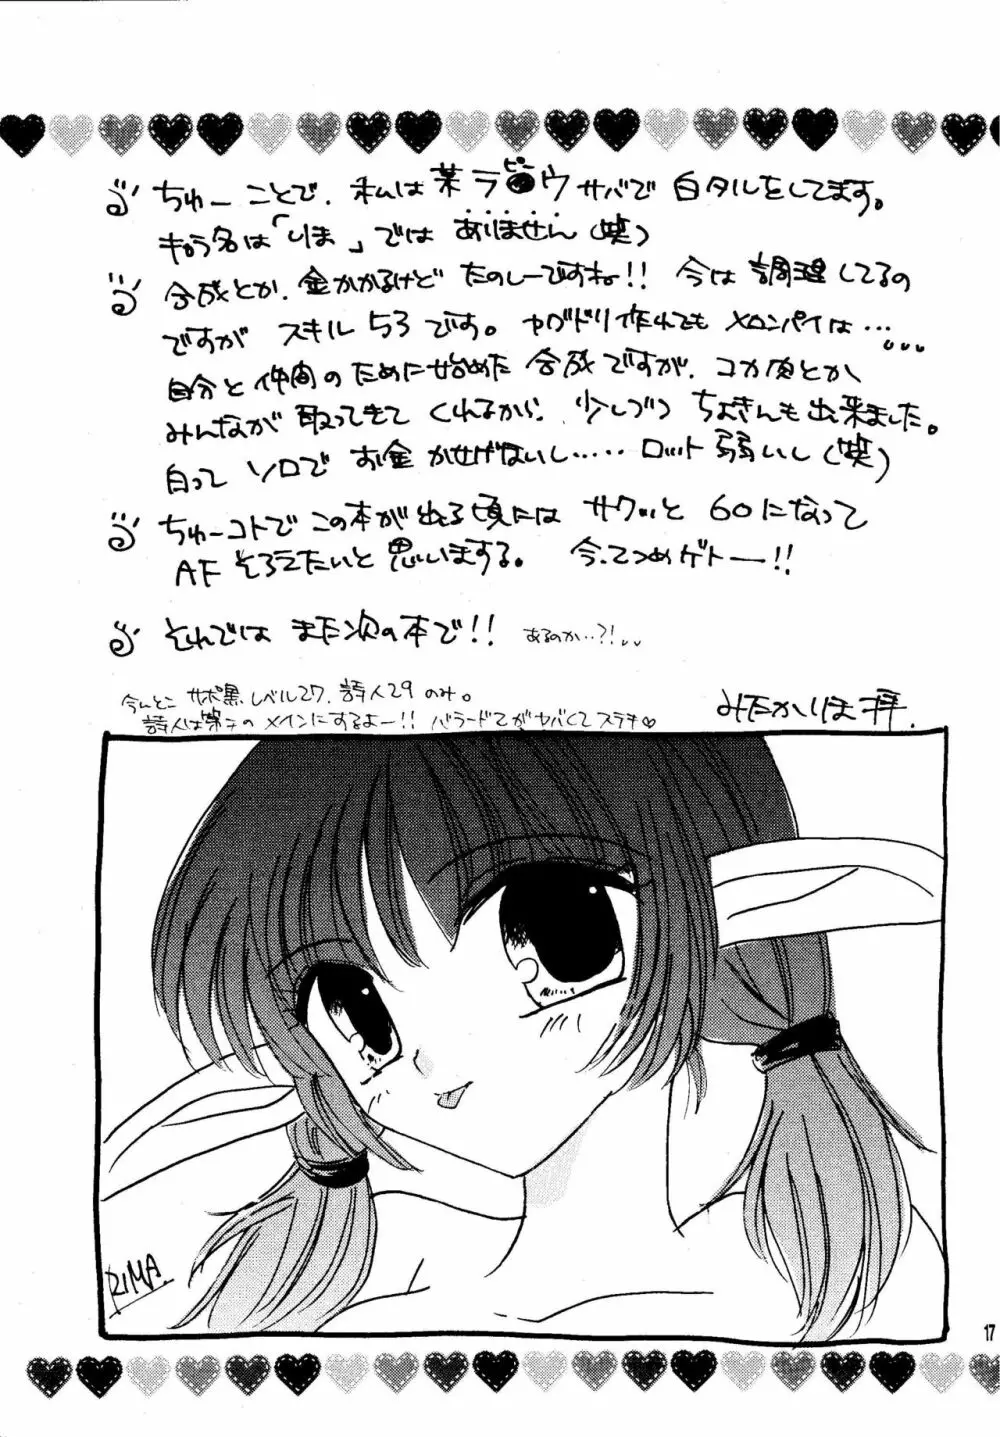 ちゅーことで、私は某ラ●ウサバで白タルをしてます。
ピー
キャラ名は「りま」ではありません(笑)
合成とか、金かかるけどたのしーですね!! 今は調理してるの
ですがスキル53です。ヤグドリ作れてもメロンパイは……
自分と仲間のために始めた合成ですが、コカ肉とか
みんなが取ってきてくれるから、少しづつちょきんも出来ました。
白ってソロでお金かせげないし……ロット弱いし(笑)
ちゅーコトでこの本が出る頃にはサクッと60になって
AFそろえたいと思いまする。 今、てつめゲトー!!
それではまた次の本で!! あるのか…?!
今んとこサポ黒レベル27、詩人29のみ。
詩人は第二のメインにするよー!! バラードてがヤバくてステキ♥
みたかりま拝.
RIMA.
17